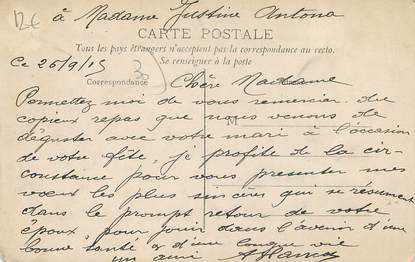 12€
à Madame Justine Antona
CARTE POSTALE
Tous les pays étrangers n'acceptent pas la correspondance au recto.
Se renseigner à la poste
Ce 26/9/15
Correspondance
Chère Madame
Permettez moi de vous remercier du
copieux repas que nous venons de
déguster avec votre mari à l'occasion
de votre fête, je profite de la cir-
constance pour vous présenter mes
vœux les plus sincères qui se résument
dans le prompt retour de votre
époux, pour jouir dans l'avenir d'une
bonne santé & d'une longue vie
un ami